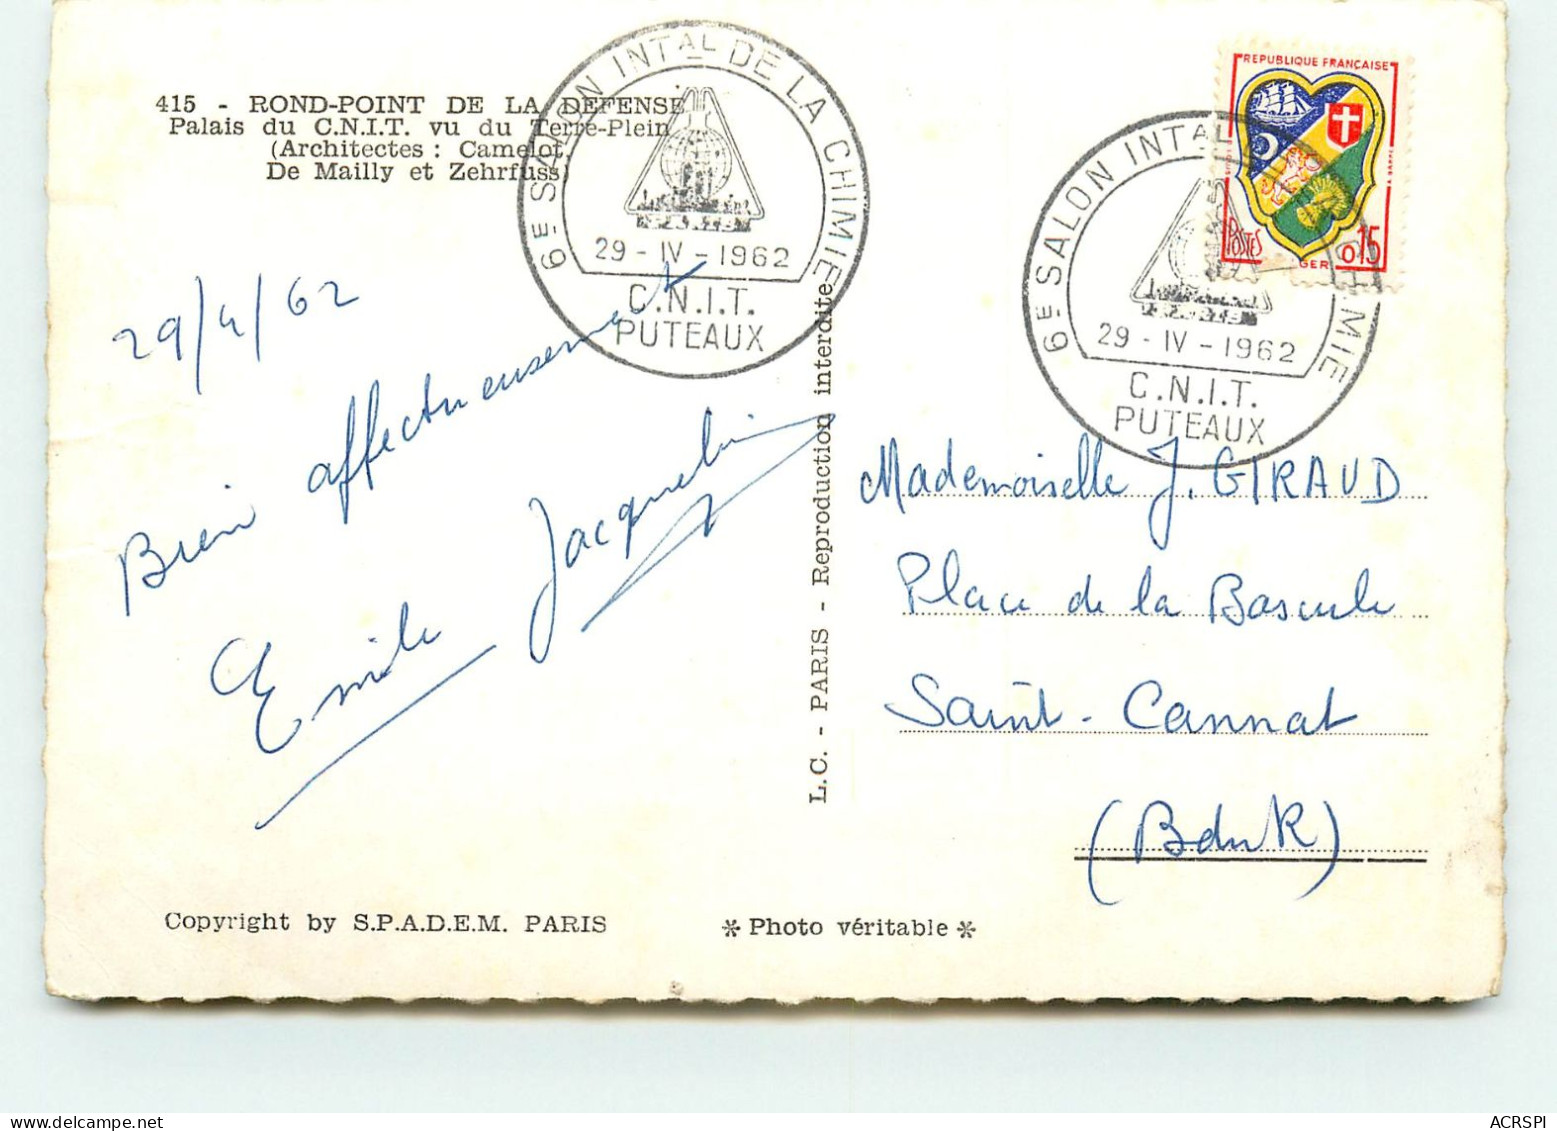 415 - ROND-POINT DE LA DEFENSE
Palais du C.N.I.T. vu du Terre-Plein
(Architectes : Camelot,
De Mailly et Zehrfuss)
6E SALON INTAL DE LA CHIMIE
29 - IV - 1962
C.N.I.T.
PUTEAUX
29/4/62
Bien affectueusement
Emile Jacqueline
Copyright by S.P.A.D.E.M. PARIS
L.C. - PARIS - Reproduction interdite
* Photo véritable *
REPUBLIQUE FRANÇAISE
POSTES
0,15
6E SALON INTAL MIE
29 - IV - 1962
C.N.I.T.
PUTEAUX
Mademoiselle J. GIRAUD
Place de la Bascule
Saint-Cannat
(BduR)
ACRSPI